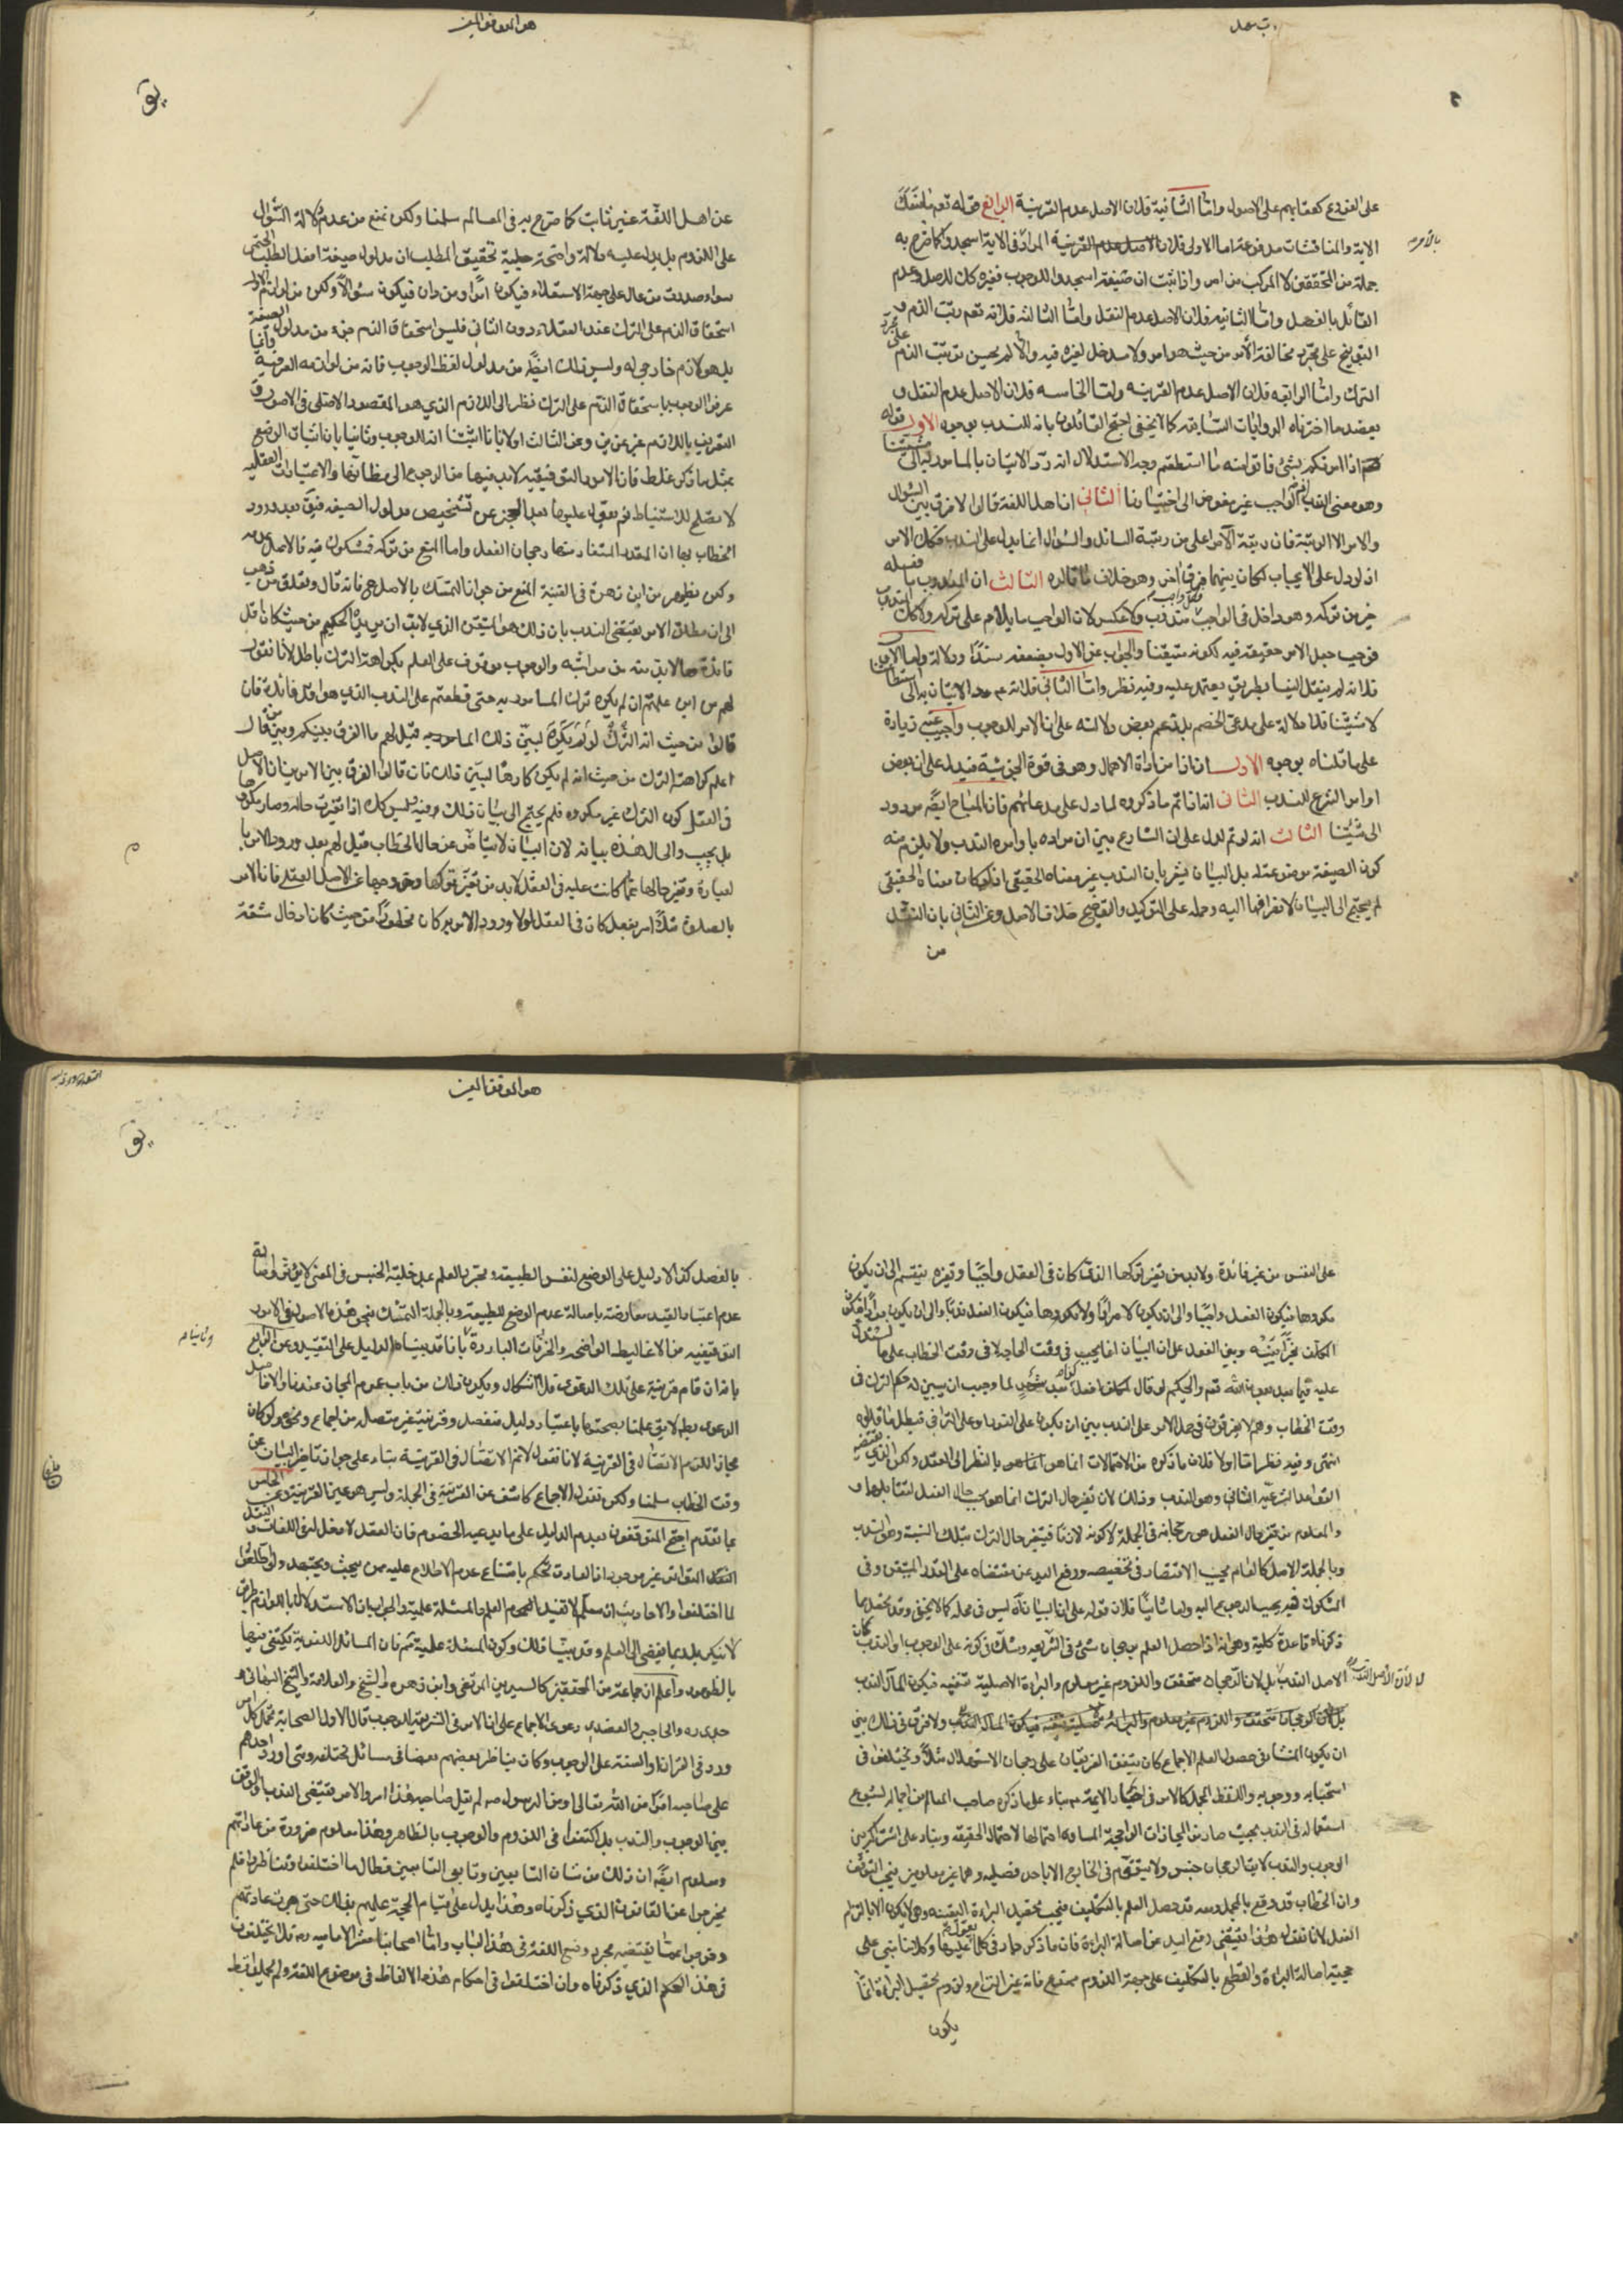 على الفروع كعقابهم على الاصول واما الثانية فلان الاصل عدم القرينة الرابع قوله تعم ما منعك
الاية والمناقشات مدفوعة اما الاولى فلان الاصل عدم القرينة المراد في الاية اسجدوا كما صرح به
بالامر
جملة من المحققين لا المركب من امر واذا ثبت ان صيغة اسجدوا للوجوب فغيره كك للاصل وعدم
القائل بالفصل واما الثانية فلان الاصل عدم النقل واما الثالثة فلانه تعم رتب الذم و
التوبيخ على مجرد مخالفة الامر من حيث هو امر ولا مدخل لغيره فيه والا لم يحسن ترتب الذم على مجرد
الترك واما الرابعة فلان الاصل عدم القرينة واما الخامسة فلان الاصل عدم النقل و
يعضد ما اخترناه الروايات السابقة كما لا يخفى احتج القائلون بانه للندب بوجوه الاول قوله
اذا امرتكم بشئ فاتوا منه ما استطعتم وجه الاستدلال انه رد الاتيان بالمامور به الى مشيتنا
وهو معنى الندب اذ الواجب غير مفوض الى اختيارنا الثاني ان اهل اللغة قالوا لا فرق بين السؤال
والامر الا الرتبة فان رتبة الآمر اعلى من رتبة السائل والسؤال انما يدل على الندب فكك الامر
اذ لو دل على الايجاب لكان بينهما فرق اخر وهو خلاف ما قالوه الثالث ان المندوب ما فعله
خير من تركه وهو داخل في الواجب فكل واجب مندوب ولا عكس لان الواجب ما يلام على تركه وكك المندوب
فوجب جعل الامر حقيقة فيه لكونه متيقنا والجواب عن الاول بضعفه سندا ودلالة اما الاول
فلانه لم ينقل الينا بطريق يعتمد عليه وفيه نظر واما الثاني فلانه عم رد الاتيان به الى استطاعتنا
لا مشيتنا فلا دلالة على مدعى الخصم بل زعم بعض دلالته على ان الامر للوجوب واجيب عنه زيادة
على ما قلناه بوجوه الاول ان اذا من اداة الاهمال وهو في قوة الجزئية فيدل على ان بعض
اوامر الشرع للندب الثاني انه اذا تم ما ذكروه لما دل على مدعائهم فان المباح ايضا مردود
الى مشيتنا الثالث انه لو تم لدل على ان الشارع بين ان مراده باوامره الندب ولا يلزم منه
كون الصيغة موضوعة له بل البيان مشعر بان الندب غير معناه الحقيقي اذ لو كان معناه الحقيقي
لم يحتج الى البيان لانصرافها اليه وحمله على التوكيد والتوضيح خلاف الاصل وعن الثاني بان النقل
من
هو الموفق المعين
عن اهل اللغة غير ثابت كما صرح به في المعالم سلمنا ولكن نمنع من عدم دلالة السؤال
على اللزوم بل يدل عليه دلالة واضحة جلية تحقيق المطلب ان مدلول صيغة افعل الطلب الحتمي
سواء صدرت من عال على جهة الاستعلاء فيكون امرا ومن دان فيكون سؤالا ولكن من لوازم الاول
استحقاق الذم على الترك عند العقلاء دون الثاني فليس استحقاق الذم جزء من مدلول الصيغة
بل هو لازم خارجي له وليس ذلك ايضا من مدلول لفظ الوجوب فانه من لوازمه العرفية وانما
عرفوا الوجوب باستحقاق الذم على الترك نظرا الى اللازم الذي هو المقصود الاصلي في الاصول و
التعريف باللازم غير عزيز وعن الثالث اولا بانا اثبتنا انه للوجوب وثانيا بان اثبات الوضع
بمثل ما ذكر غلط فان الامور التوقيفية لابد فيها من الرجوع الى مظانها والاعتبارات العقلية
لا تصلح للاستنباط نعم يعول عليها بعد العجز عن تشخيص مدلول الصيغة فيق بعد ورود
الخطاب بها ان القدر المتفاد منها رجحان الفعل واما المنع من تركه فمشكوك فيه فالاصل عدمه
ولكن يظهر من ابن زهرة في الغنية المنع من جواز التمسك بالاصل هو فانه قال وتعلق من ذهب
الى ان مطلق الامر يقتضي الندب بان ذلك هو المتيقن الذي لابد ان يريده الحكيم من حيث كان اقل
فائدة حالا يق منه من مراتبه والوجوب موقوف على العلم بكراهة الترك باطل لانا نقول
لهم من اين علمتم ان لم يكره ترك المامور به حتى قطعتم على الندب الذي هو اقل فائدة فان
قالوا من حيث انه الترك لو لم يكره لبين ذلك المامور به قيل لهم ما الفرق بينكم وبين من قال
اعلم كراهة الترك من حيث انه لو لم يكن كارها لبين ذلك فان قالوا الفرق بين الامرين ان الاصل
في العقل كون الترك غير مكروه فلم يحتج الى بيان ذلك وفيه ليس كك اذا تغيرت حاله وصار مكروها
بل يجب والحال هذه بيانه لان البيان لا يتاخر عن حال الخطاب قيل لهم بعد ورود الامر بها
لعبادة وتغير حالها عما كانت عليه في العقل لابد من تغير تركها وخروجها عن الاصل العقلي فان الامر
بالصلوة مثلا امر بفعل كان في العقل لولا ورود الامر به كان محظورا من حيث كان ادخال مشقة
هو الموفق المعين
على النفس من غير فائدة ولابد من تغير تركها الذي كان في العقل واجبا وتغيره ينقسم الى ان يكون
مكروها فيكون الفعل واجبا والى ان يكون لا مرادا ولا مكروها فيكون الفعل ندبا والى ان يكون مرادا فيكون
المكلف مخيرا بينه وبين الفعل على ان البيان انما يجب في وقت الحاجة لا في وقت الخطاب على ما سندل
عليه فيما بعد بعون الله تعم والحكيم لو قال لمكلف افعل كذا بعد شهر لما وجب ان يبين له حكم الترك في
وقت الخطاب وهم لا يفرقون في حمل الامر على الندب بين ان يكون على الفور او على التراخي فبطل ما قالوه
انتهى وفيه نظر اما اولا فلان ما ذكره من الاحتمالات انما هو بالنظر الى العقل ولكن الذي يقتضيه
القواعد الشرعية الثاني وهو الندب وذلك لان تغير حال الترك انما هو بحسب حال الفعل لتقابلهما و
والمعلوم من تغير حال الفعل هو رجحانه في الجملة لا كونه لازما فيتغير حال الترك بتلك النسبة وهو الندب
وبالجملة الاصل كالعام يجب الاقتصار في تخصيصه ورفع اليد عن مقتضاه على القدر المتيقن وفي
المشكوك فيه يجب الرجوع اليه واما ثانيا فلان قوله على ان البيان آه ليس في محله كما لا يخفى وقد يجعل ما
ذكرناه قاعدة كلية وهي انه اذا حصل العلم برجحان شئ في الشريعة وشك في كونه على الوجوب او الندب كان
الاصل الندب بل لان الرجحان متحقق واللزوم غير معلوم والبراءة الاصلية تنفيه فيكون المآل الندب
ولا فرق في ذلك بين
ان يكون المنشا في حصول العلم الاجماع كان يتفق الفريقان على رجحان الاستهلال مثلا ويختلفوا في
استحبابه ووجوبه او اللفظ المجمل كالامر في اخبار الائمة عم بناء على ما ذكره صاحب المعالم من اجماله لشيوع
استعماله في الندب بحيث صار من المجازات الراجحة المساوي احتمالها لاحتمال الحقيقة وبناء على اشتراكه بين
الوجوب والندب لا يق الرجحان جنس ولا يتقوم في الخارج الا باحد فصليه وهما غير معلومين فيجب التوقف
وان الخطاب قد وقع بالمجمل ومعه قد حصل العلم بالتكليف فيجب تحصيل البراءة اليقينية وهي لا يكون الا بالتزام
الفعل لانا نقول هذا يقتضي رفع اليد عن اصالة البراءة فان ما ذكر جار في كلما يعول فيه عليها وكلامنا مبني على
حجية اصالة البراءة والقطع بالتكليف على جهة اللزوم ممنوع فانه غير التزام ولزوم تحصيل البراءة انما
يكون
بالفصل كذا لا دليل على الوضع لنفس الطبيعة ومجرد العلم على خلية الجنس في المعنى لا يؤثر واصالة
عدم اعتبار القيد معارضة باصالة عدم الوضع للطبيعة وبالجملة التمسك بنحو هذه الاصول في الامور
التوقيفية من الاغاليط الواضحة والخرافات الباردة بانا قد بيناه الدليل على التقييد وعن الرابع
بانه ان قام قرينة على تلك الدعوى فلا اشكال ويكون ذلك من باب عموم المجاز عندنا والا فاصل
الدعوى بط لا يق علمنا بصحتها باعتبار دليل منفصل وقرينة غير متصلة من اجماع ونحوه ولو كان
مجازا للزم الاتصال في القرينة لانا نقول لا نم الاتصال في القرينة بناء على جواز تاخير البيان عن
وقت الخطاب سلمنا ولكن نقول الاجماع كاشف عن القرينة في الجملة وليس هو عين القرينة وعن الخامس
بما تقدم احتج المتوقفون بعدم الدليل على ما يدعيه الخصوم فان العقل لا مدخل له في اللغات و النقل
المتواتر غير موجود اذ العادة تحكم بامتناع عدم الاطلاع عليه ممن يبحث ويجتهد ولو اطلعوا
لما اختلفوا والاحاد لا يفيد العلم والمسئلة علمية والجواب ان الاستدلال باللوازم طريق
لا ينكر بل ربما يفضي الى العلم وقد بينا ذلك وكون المسئلة علمية ثم فان المسائل اللغوية يكتفى فيها
بالظهور واعلم ان جماعة من المحققين كالسيدين المرتضى وابن زهرة والشيخ والعلامة والشيخ البهائي و
جدي ره والحاجبي والعضدي دعوى الاجماع على ان الامر في الشريعة للوجوب قال الاول الصحابة تحمل كل امر
ورد في القرآن او السنة على الوجوب وكان يناظر بعضهم بعضا في مسائل مختلفة ومتى اورد احدهم
على صاحبه امرا من الله تعالى او من الرسول ص لم يقل صاحبه هذا امر والامر يقتضي الندب او الوقف
بين الوجوب والندب بل اكتفوا في اللزوم والوجوب بالظاهر وهذا معلوم ضرورة من عاداتهم
ومعلوم ايضا ان ذلك من شان التابعين وتابعي التابعين فطال ما اختلفوا وتناظروا فلم
يخرجوا عن القانون الذي ذكرناه وهذا يدل على قيام الحجة عليهم بذلك حتى جرت عادتهم
وخرجوا عما يقتضيه مجرد وضع اللغة في هذا الباب واما اصحابنا معشر الامامية فلا يختلفون
في هذا الحكم الذي ذكرناه وان اختلفوا في احكام هذه الالفاظ في موضوع اللغة ولم يحملوا قط